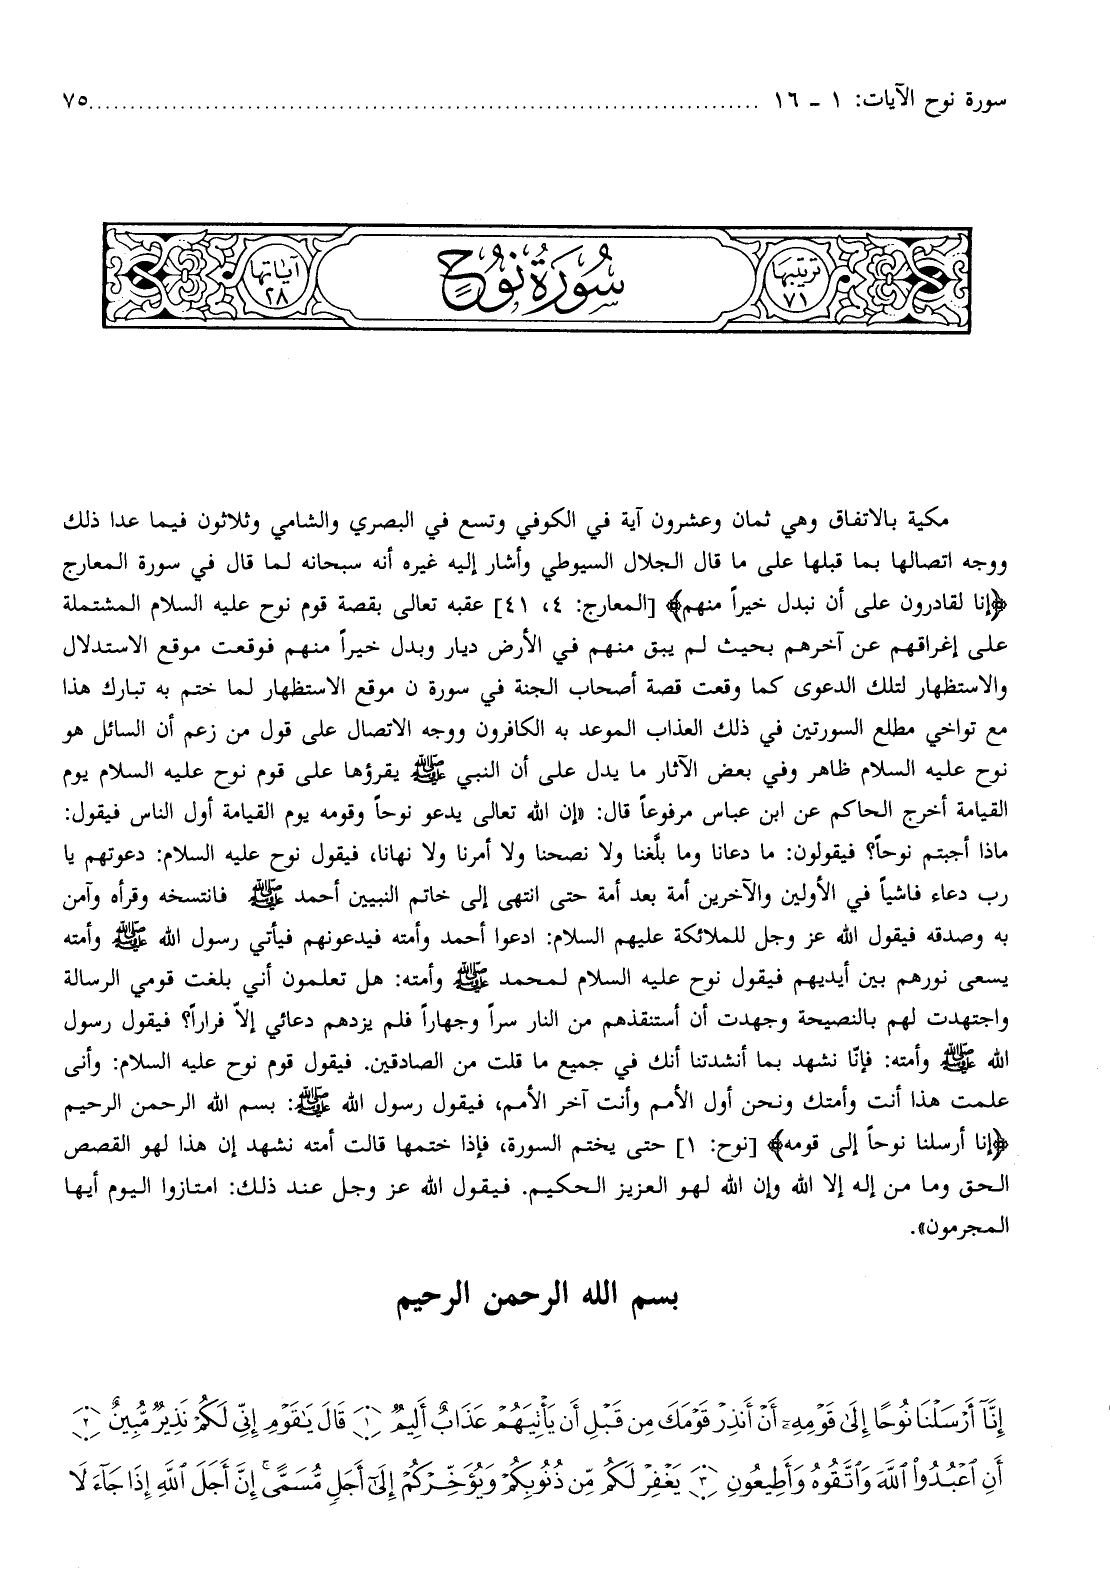 سورة نوح الآيات: ١ ـ ١٦ ........................................................................ ٧٥
ترتيبها
٧١
سُورَةُ نُوحٍ
آياتها
٢٨
مكية بالاتفاق وهي ثمان وعشرون آية في الكوفي وتسع في البصري والشامي وثلاثون فيما عدا ذلك
ووجه اتصالها بما قبلها على ما قال الجلال السيوطي وأشار إليه غيره أنه سبحانه لما قال في سورة المعارج
﴿إنا لقادرون على أن نبدل خيراً منهم﴾ [المعارج: ٤، ٤١] عقبه تعالى بقصة قوم نوح عليه السلام المشتملة
على إغراقهم عن آخرهم بحيث لم يبق منهم في الأرض ديار وبدل خيراً منهم فوقعت موقع الاستدلال
والاستظهار لتلك الدعوى كما وقعت قصة أصحاب الجنة في سورة ن موقع الاستظهار لما ختم به تبارك هذا
مع تواخي مطلع السورتين في ذلك العذاب الموعد به الكافرون ووجه الاتصال على قول من زعم أن السائل هو
نوح عليه السلام ظاهر وفي بعض الآثار ما يدل على أن النبي ﷺ يقرؤها على قوم نوح عليه السلام يوم
القيامة أخرج الحاكم عن ابن عباس مرفوعاً قال: «إن الله تعالى يدعو نوحاً وقومه يوم القيامة أول الناس فيقول:
ماذا أجبتم نوحاً؟ فيقولون: ما دعانا وما بلَّغنا ولا نصحنا ولا أمرنا ولا نهانا، فيقول نوح عليه السلام: دعوتهم يا
رب دعاء فاشياً في الأولين والآخرين أمة بعد أمة حتى انتهى إلى خاتم النبيين أحمد ﷺ فانتسخه وقرأه وآمن
به وصدقه فيقول الله عز وجل للملائكة عليهم السلام: ادعوا أحمد وأمته فيدعونهم فيأتي رسول الله ﷺ وأمته
يسعى نورهم بين أيديهم فيقول نوح عليه السلام لمحمد ﷺ وأمته: هل تعلمون أني بلغت قومي الرسالة
واجتهدت لهم بالنصيحة وجهدت أن أستنقذهم من النار سراً وجهاراً فلم يزدهم دعائي إلاّ فراراً؟ فيقول رسول
الله ﷺ وأمته: فإنّا نشهد بما أنشدتنا أنك في جميع ما قلت من الصادقين. فيقول قوم نوح عليه السلام: وأنى
علمت هذا أنت وأمتك ونحن أول الأمم وأنت آخر الأمم، فيقول رسول الله ﷺ: بسم الله الرحمن الرحيم
﴿إنا أرسلنا نوحاً إلى قومه﴾ [نوح: ١] حتى يختم السورة، فإذا ختمها قالت أمته نشهد إن هذا لهو القصص
الحق وما من إله إلا الله وإن الله لهو العزيز الحكيم. فيقول الله عز وجل عند ذلك: امتازوا اليوم أيها
المجرمون».
بسم الله الرحمن الرحيم
إِنَّآ أَرْسَلْنَا نُوحًا إِلَىٰ قَوْمِهِۦٓ أَنْ أَنذِرْ قَوْمَكَ مِن قَبْلِ أَن يَأْتِيَهُمْ عَذَابٌ أَلِيمٌ ﴿١﴾ قَالَ يَٰقَوْمِ إِنِّى لَكُمْ نَذِيرٌ مُّبِينٌ ﴿٢﴾
أَنِ ٱعْبُدُوا۟ ٱللَّهَ وَٱتَّقُوهُ وَأَطِيعُونِ ﴿٣﴾ يَغْفِرْ لَكُم مِّن ذُنُوبِكُمْ وَيُؤَخِّرْكُمْ إِلَىٰٓ أَجَلٍ مُّسَمًّى ۚ إِنَّ أَجَلَ ٱللَّهِ إِذَا جَآءَ لَا